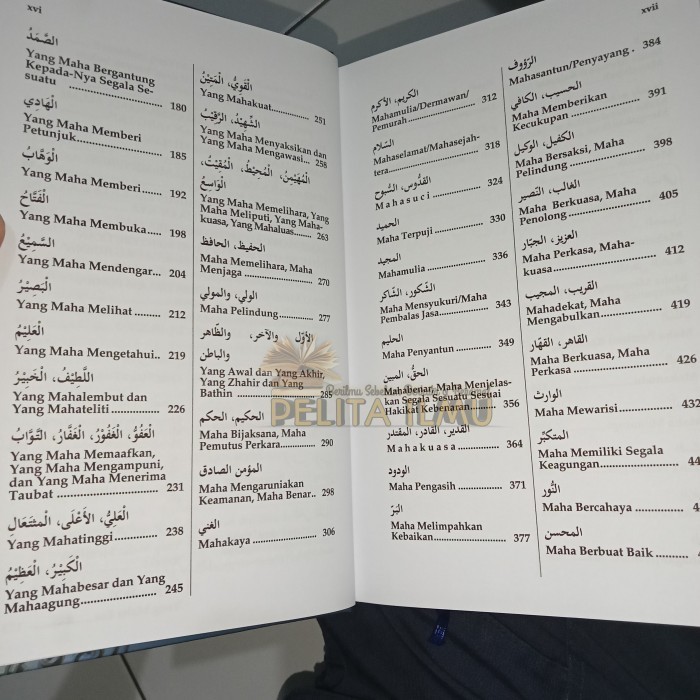 xvi
الصَّمَدُ
Yang Maha Bergantung
Kepada-Nya Segala Se-
suatu ........................ 180
الْهَادِي
Yang Maha Memberi
Petunjuk..................... 185
الْوَهَّابُ
Yang Maha Memberi...... 192
الْفَتَّاحُ
Yang Maha Membuka... 198
السَّمِيعُ
Yang Maha Mendengar... 204
الْبَصِيْرُ
Yang Maha Melihat ...... 212
الْعَلِيْمُ
Yang Maha Mengetahui.. 219
اللَّطِيْفُ، الْخَبِيْرُ
Yang Mahalembut dan
Yang Mahateliti ........... 226
الْعَفُوُّ، الْغَفُوْرُ، الْغَفَّارُ، التَّوَّابُ
Yang Maha Memaafkan,
Yang Maha Mengampuni,
dan Yang Maha Menerima
Taubat ........................ 231
الْعَلِيُّ، الأَعْلَى، الْمُتَعَالِ
Yang Mahatinggi .......... 238
الْكَبِيْرُ، الْعَظِيْمُ
Yang Mahabesar dan Yang
Mahaagung.................. 245
الْقَوِيُّ، الْمَتِيْنُ
Yang Mahakuat............ 251
الشَّهِيْدُ، الرَّقِيْبُ
Yang Maha Menyaksikan dan
Yang Maha Mengawasi... 258
الْمُهَيْمِنُ، الْمُحِيْطُ، الْمُقِيْتُ،
الْوَاسِعُ
Yang Maha Memelihara, Yang
Maha Meliputi, Yang Maha-
kuasa, Yang Mahaluas... 263
الحفيظ، الحافظ
Maha Memelihara, Maha
Menjaga ..................... 270
الولي، والمولي
Maha Pelindung ........... 277
الأوّل والآخر، والظّاهر
والباطن
Yang Awal dan Yang Akhir,
Yang Zhahir dan Yang
Bathin ........................ 285
الحكيم، الحكم
Maha Bijaksana, Maha
Pemutus Perkara.......... 290
المؤمن الصادق
Maha Mengaruniakan
Keamanan, Maha Benar.. 298
الغني
Mahakaya ................... 306
xvii
الكريم، الأكرم
Mahamulia/Dermawan/
Pemurah ..................... 312
السّلام
Mahaselamat/Mahasejah-
tera............................ 318
القدّوس، السُّبوح
Mahasuci .................... 324
الحميد
Maha Terpuji .............. 330
المجيد
Mahamulia .................. 336
الشّكور، الشّاكر
Maha Mensyukuri/Maha
Pembalas Jasa.............. 343
الحليم
Maha Penyantun .......... 349
الحقّ، المبين
Mahabenar, Maha Menjelas-
kan Segala Sesuatu Sesuai
Hakikat Kebenaran........ 356
القدير، القادر، المقتدر
Mahakuasa .................. 364
الودود
Maha Pengasih ............ 371
البَرّ
Maha Melimpahkan
Kebaikan..................... 377
الرّؤوف
Mahasantun/Penyayang . 384
الحسيب، الكافي
Maha Memberikan
Kecukupan .................. 391
الكفيل، الوكيل
Maha Bersaksi, Maha
Pelindung ................... 398
الغالب، النّصير
Maha Berkuasa, Maha
Penolong..................... 405
العزيز، الجبّار
Maha Perkasa, Maha-
kuasa ......................... 412
القريب، المجيب
Mahadekat, Maha
Mengabulkan............... 419
القاهر، القهّار
Maha Berkuasa, Maha
Perkasa ...................... 426
الوارث
Maha Mewarisi............. 432
المتكبّر
Maha Memiliki Segala
Keagungan...................
النُّور
Maha Bercahaya ...........
المحسن
Maha Berbuat Baik ........
PELITA ILMU